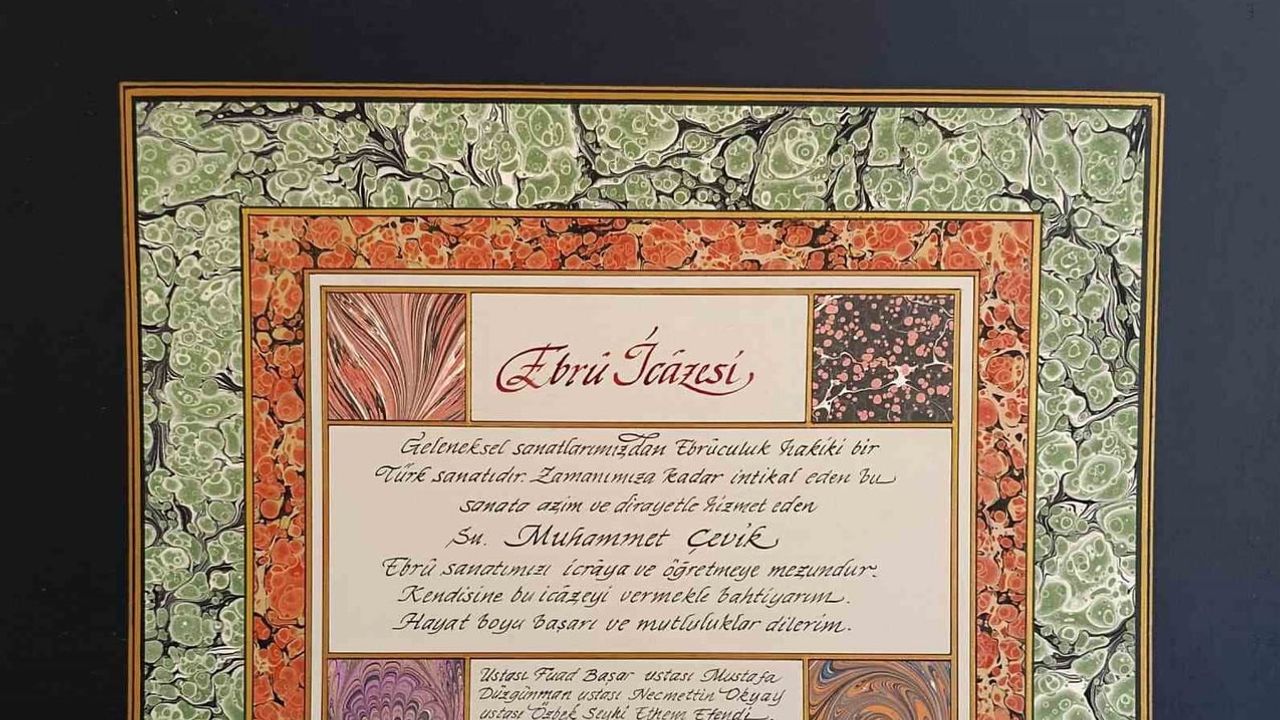 Ebrû İcâzesi
Geleneksel sanatlarımızdan Ebrûculuk hakiki bir
Türk sanatıdır. Zamanımıza kadar intikal eden bu
sanata azim ve dirayetle hizmet eden
Sn. Muhammet Çevik
Ebrû sanatımızı icrâya ve öğretmeye mezundur.
Kendisine bu icâzeyi vermekle bahtiyarım.
Hayat boyu başarı ve mutluluklar dilerim.
Ustası Fuad Başar ustası Mustafa
Düzgünman ustası Necmettin Okyay
ustası Özbek Şeyhi Ethem Efendi